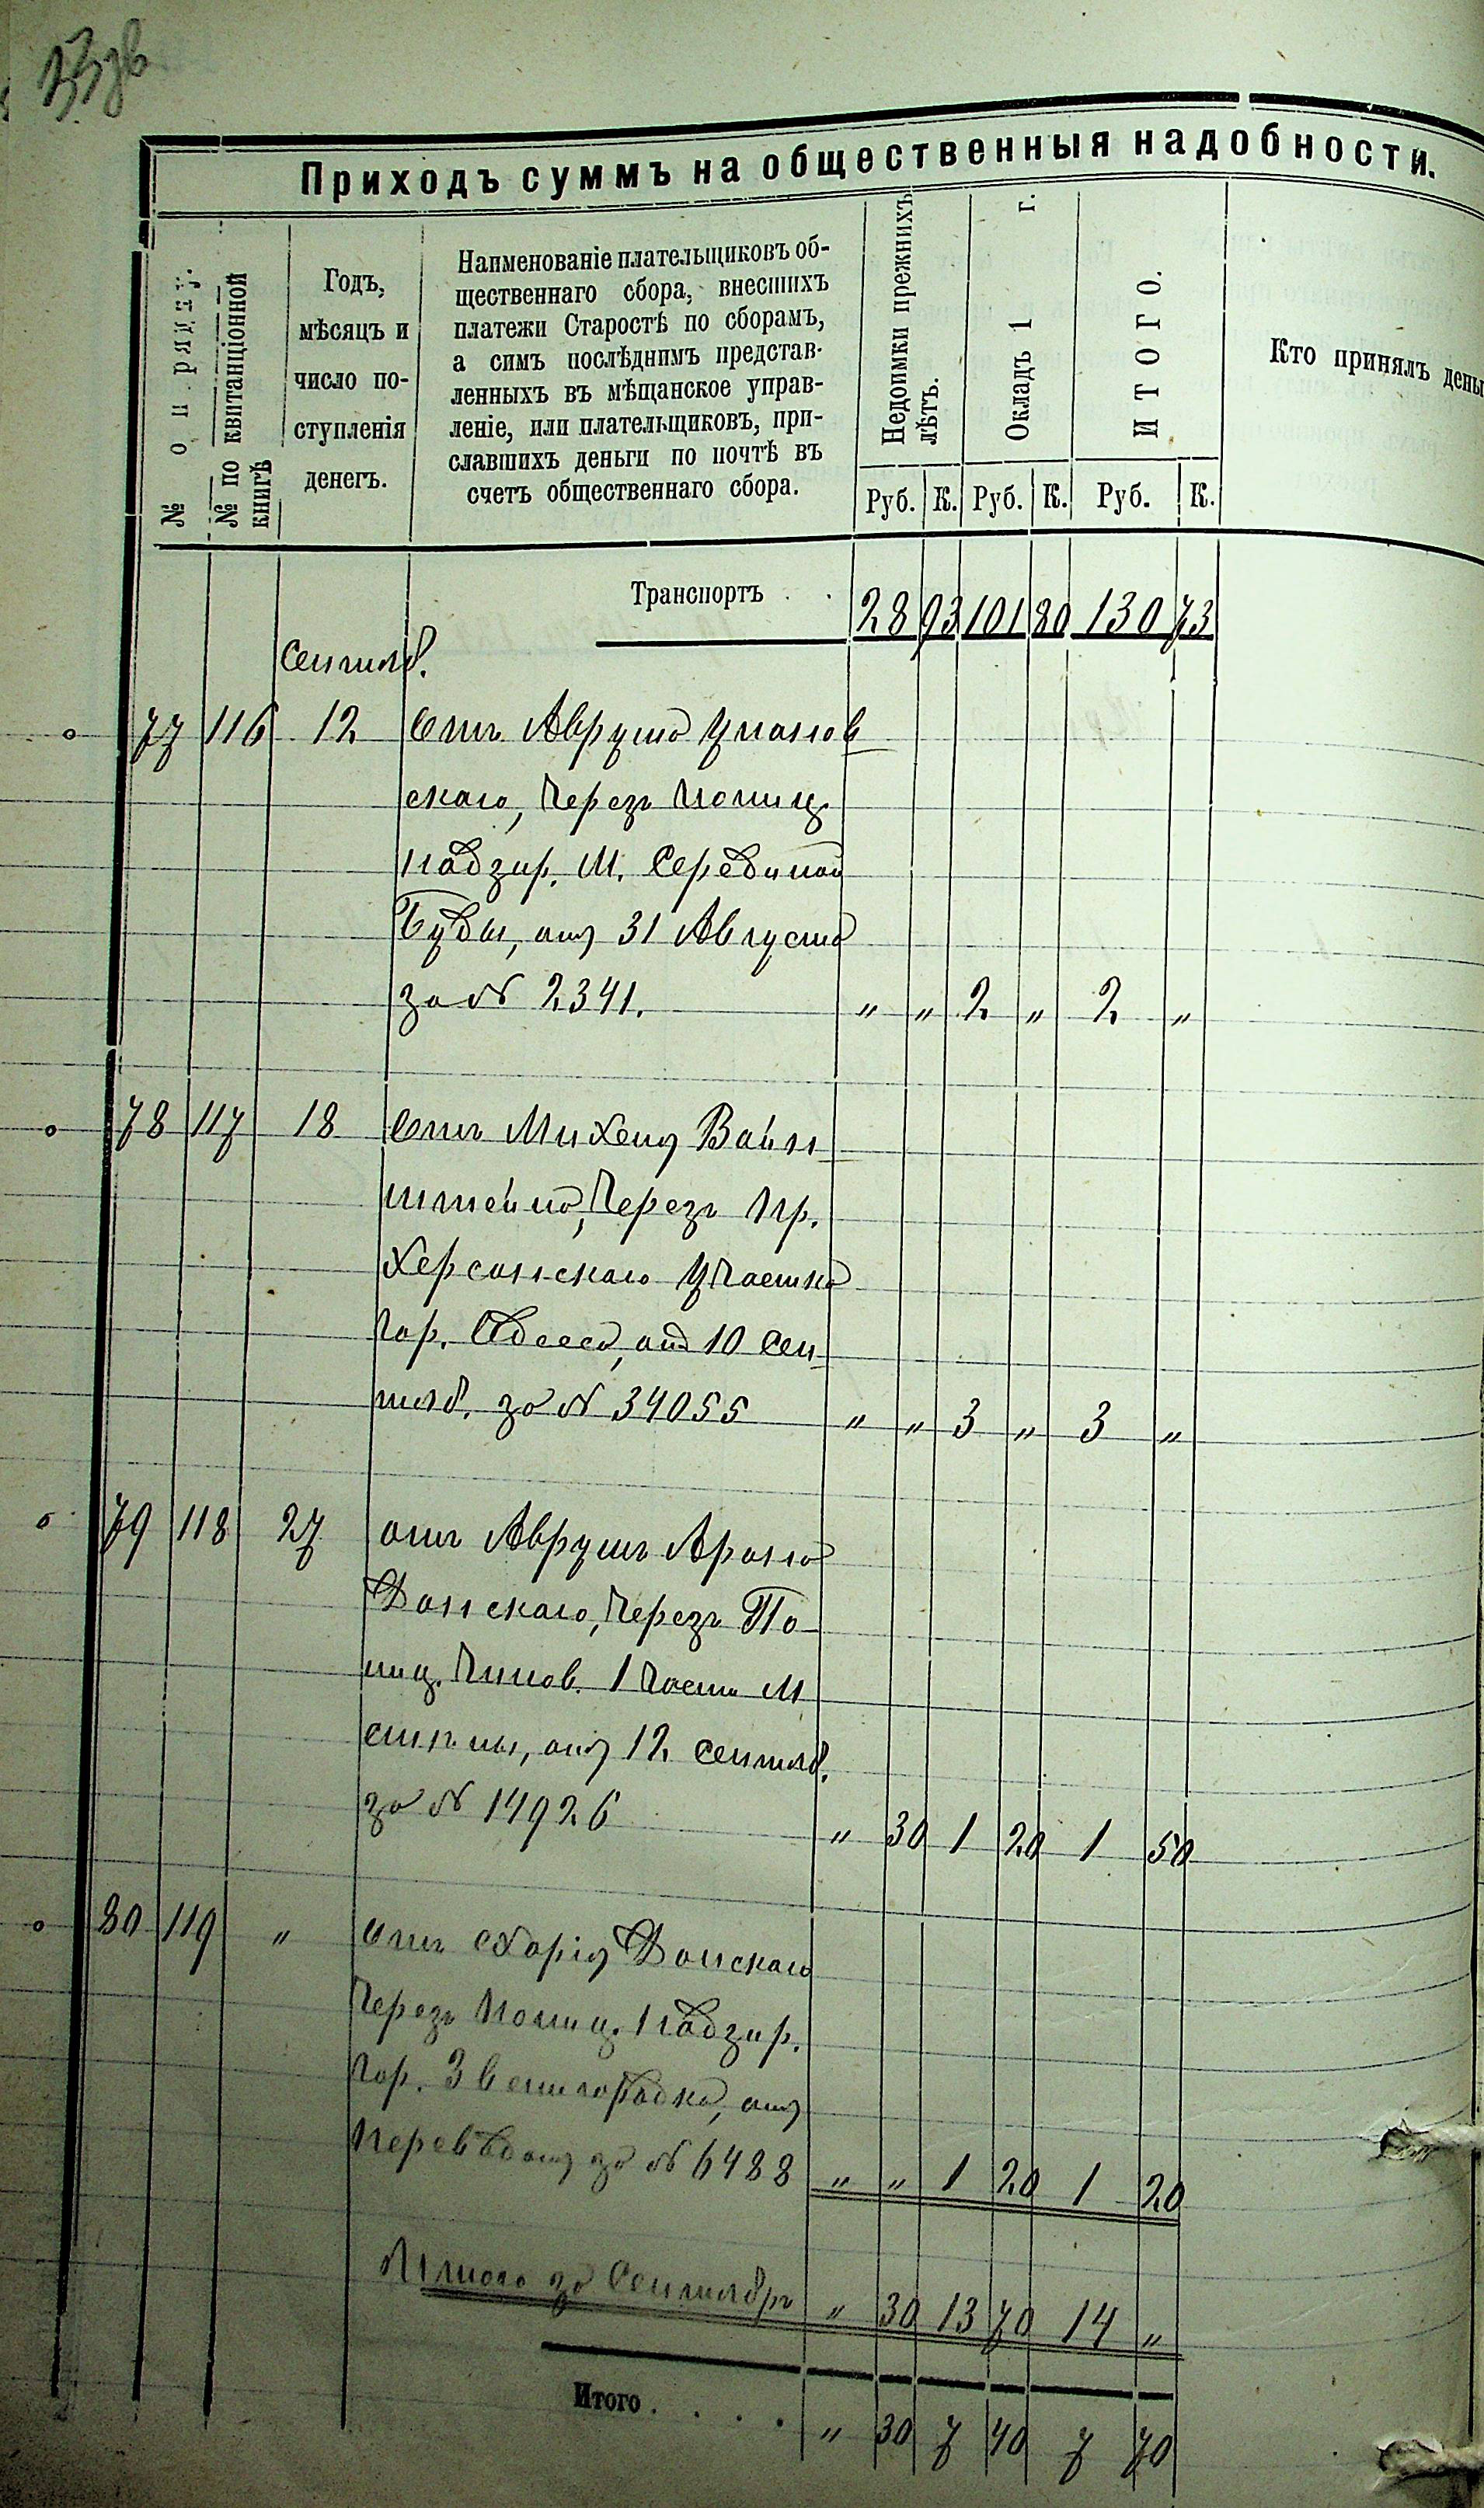 Приходъ суммъ на общественныя надобности.
№ по ряду.
№ по квитанціонной книгѣ
Годъ,
мѣсяцъ и
число по-
ступленія
денегъ.
Наименованіе плательщиковъ об-
щественнаго сбора, внесшихъ
платежи Старостѣ по сборамъ,
а симъ послѣднимъ представ-
ленныхъ въ мѣщанское управ-
леніе, или плательщиковъ, при-
славшихъ деньги по почтѣ въ
счетъ общественнаго сбора.
Недоимки прежнихъ
лѣтъ.
Окладъ 1 г.
ИТОГО.
Кто принялъ день
Руб. К. Руб. К. Руб. К.
Транспортъ . . 28 93 101 80 130 73
Сентяб.
77 116 12 Отъ Аврума Уманов
скаго, через Полиц.
надзир. М. Середмной
Буды, отъ 31 Августа
за № 2341. " " 2 " 2 "
78 117 18 Отъ Михеля Вайн
штейна, через Пр.
Херсонскаго участка
гор. Одесса, отъ 10 Сен
тяб. за № 34055 " " 3 " 3 "
79 118 27 отъ Аврумъ Арона
Донскаго, через По
лиц. Чинов. 1 части М
отъ 12 Сентяб.
за № 14926 " 30 1 20 1 50
80 119 " Отъ Донскаго
через Полиц. Надзир.
гор. Звенигородка, отъ
за № 6488 " " 1 20 1 20
Итого за Сентябрь " 30 13 70 14 "
Итого . . . . " 30 7 40 7 70